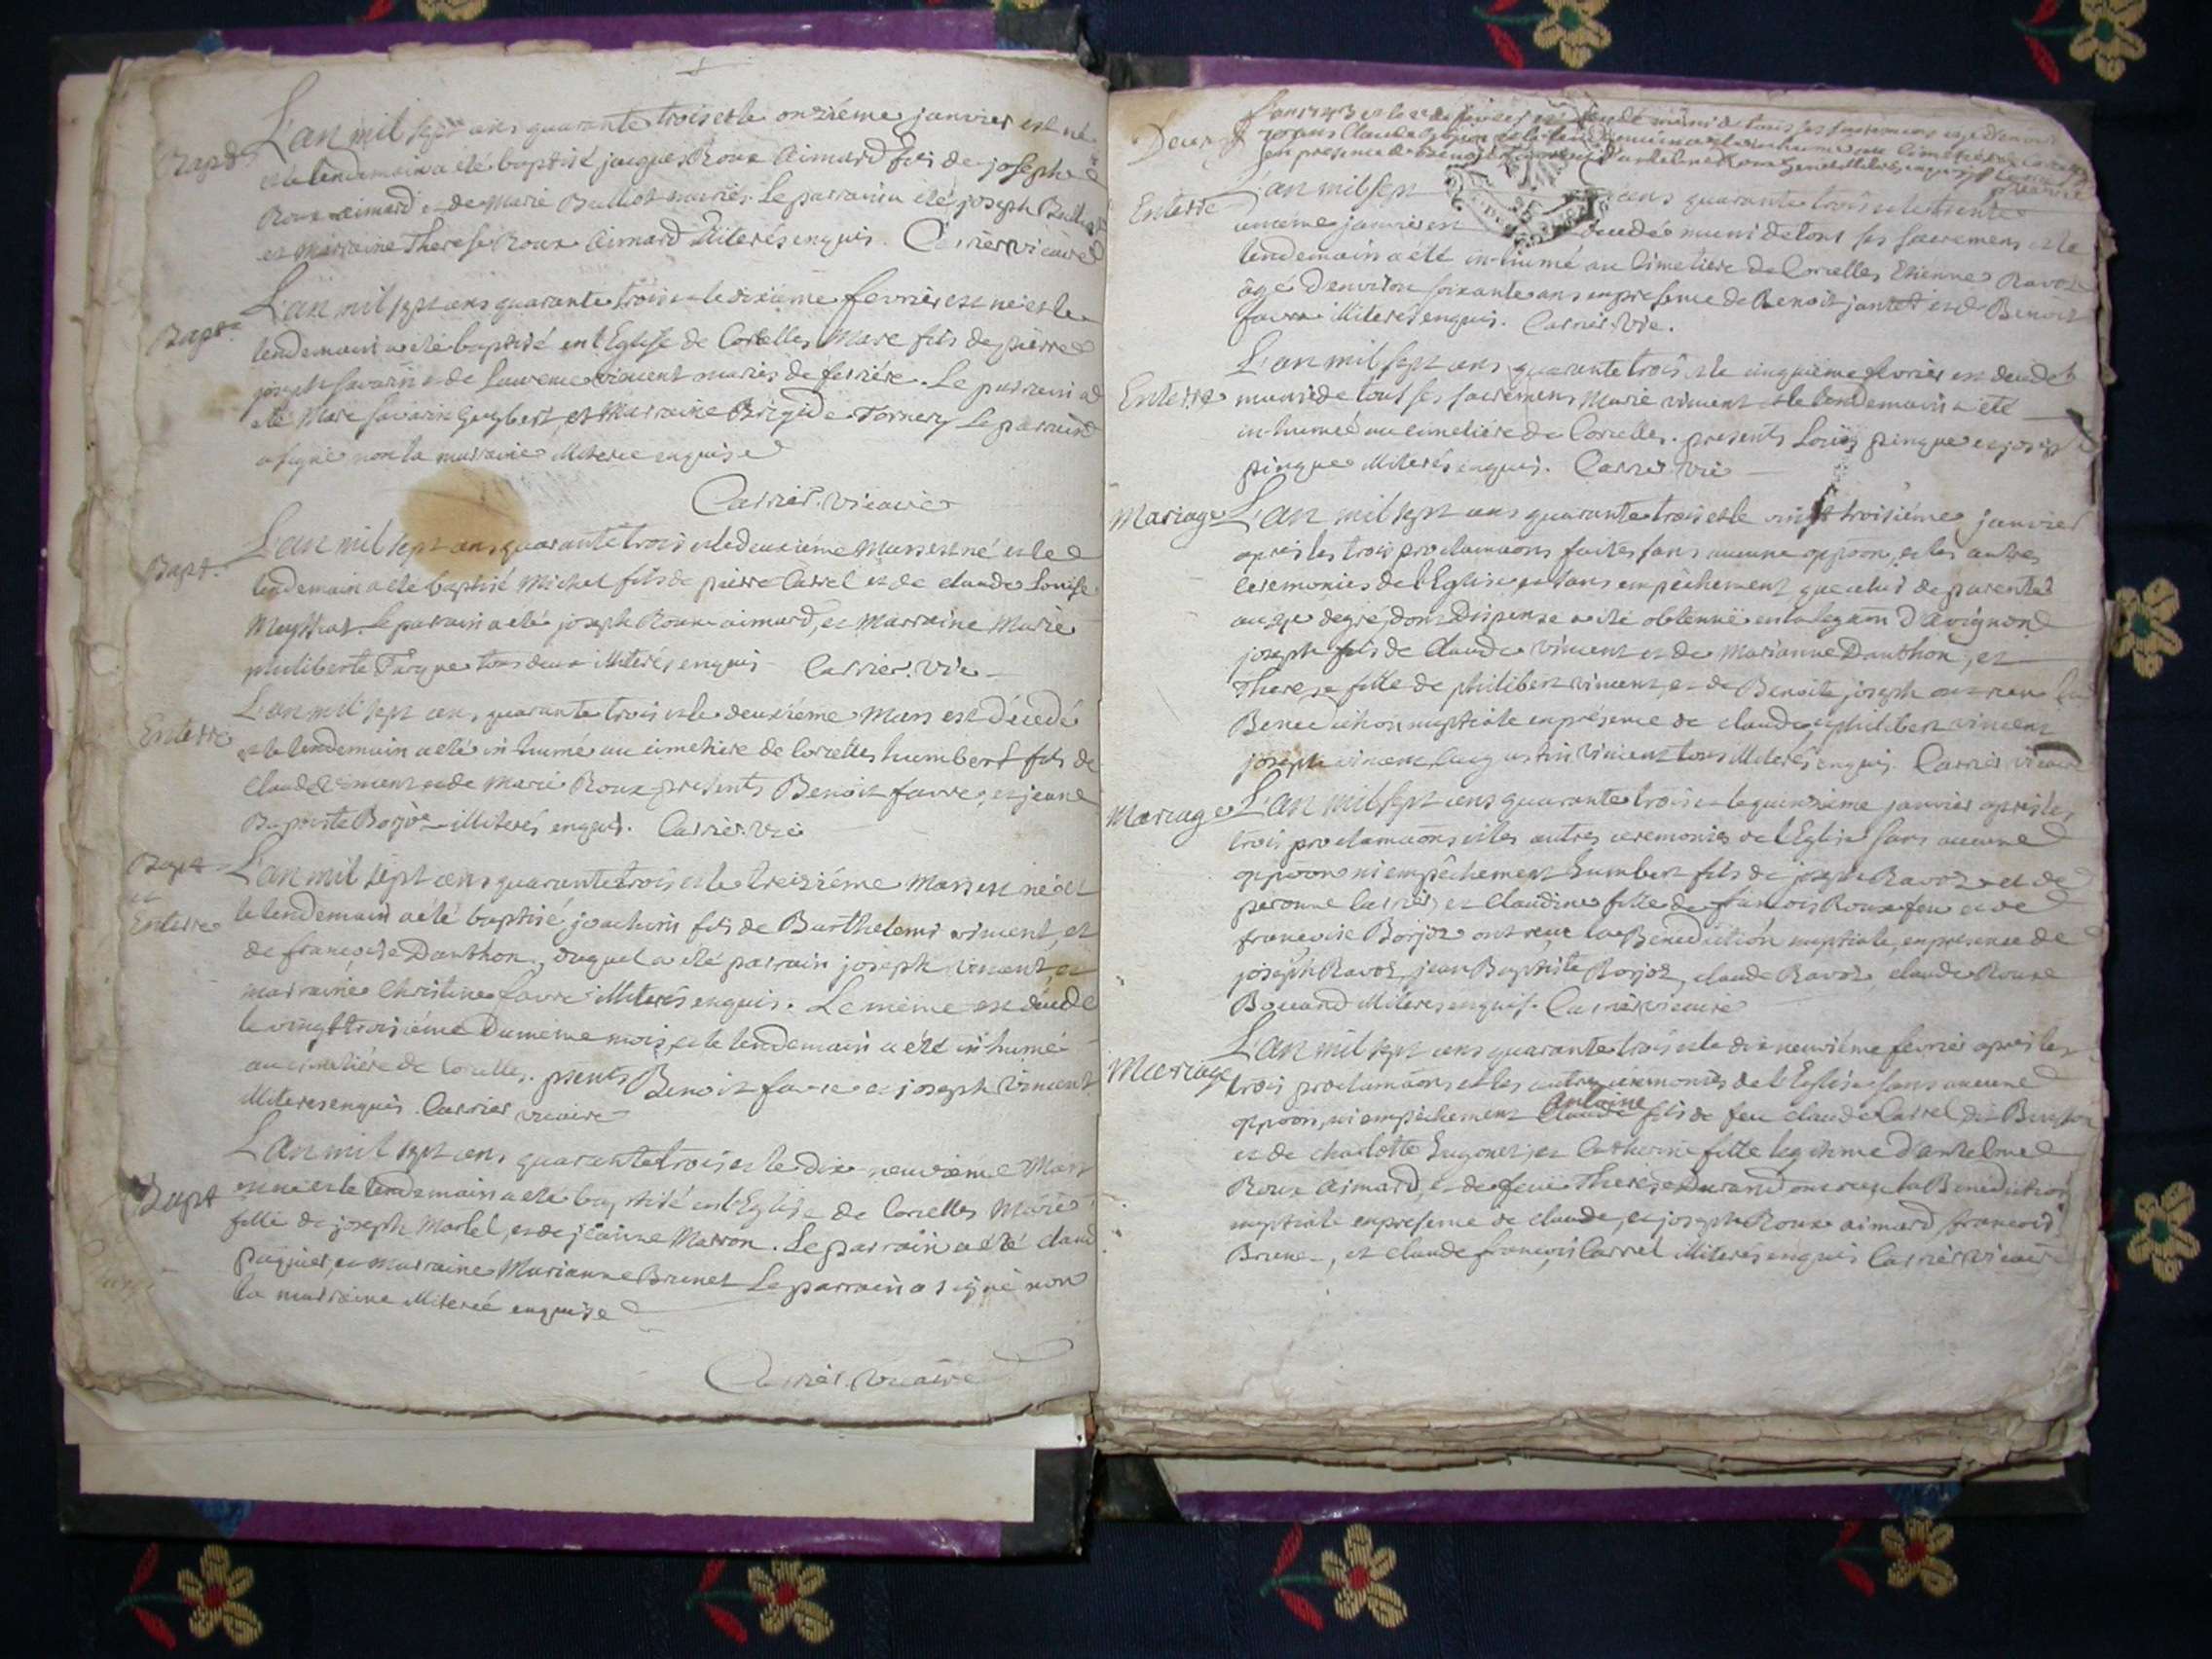 Bapt
L'an mil sept cens quarante trois et le onziéme janvier est né
et le lendemain a été baptisé jacques Roux Aimard fils de joseph
Roux aimard et de Marie Bulliot mariés. Le parrain a été joseph Bulliot
et Marraine Therese Roux Aimard illiterés enquis. Carrier vicaire
Bapt
L'an mil sept cens quarante trois et le dixiéme fevrier est né et le
lendemain a été baptisé en l'Eglise de Corcelles Marc fils de pierre
joseph Savarin et de Laurence vincent mariés de ferriére. Le parrain a
été Marc Savarin et Marraine Brigide Le parrain
a signé non la marraine illiterée enquise
Carrier. vicaire
Bapt.
L'an mil sept cens quarante trois et le deuxiéme Mars est né et le
lendemain a été baptisé Michel fils de pierre Carrel et de claude Louise
Le parrain a été joseph Roux aimard, et Marraine Marie
philiberte tous deux illiterés enquis Carrier. vic
Enterre
L'an mil sept cens quarante trois et le deuxiéme Mars est décedé
et le lendemain a été inhumé au cimetiere de Corcelles humbert fils de
claude vincent et de Marie Roux presents Benoit favre, et jean
Baptiste Borjot illiterés enquis. Carrier. vic
Bapt
et
Enterre
L'an mil sept cens quarante trois et le treiziéme Mars est né et
le lendemain a été baptisé joachim fils de Barthelemi vincent, et
de françoise Danthon, duquel a été parrain joseph vincent, et
marraine Christine favre illiterés enquis. Le même est décedé
le vingt troisiéme Du même mois, et le lendemain a été inhumé
au cimetiére de Corcelles. pnts Benoit favre et joseph vincent
illiterés enquis. Carrier vicaire
Bapt
L'an mil sept cens quarante trois et le dix neuviéme Mars
est né et le lendemain a été baptisé en l'Eglise de Corcelles Marie
fille de joseph Martel, et de jeanne Marron. Le parrain a été claud
et marraine Marianne Brunet Le parrain a signé non
la marraine illiterée enquise
Carrier. vicaire
L'an 1743 et le de fevrier est decedé muni de tous ses sacremens
ans Claude et le lendemain a été inhumé au cimetiére
en presence de Benoit
Enterre
L'an mil sept cens quarante trois et le trente
uniéme janvier est decedé muni de tous ses sacremens, et le
lendemain a été inhumé au Cimetiere de Corcelles Etienne Ravot
âgé D'environ soixante ans en presence de Benoit jantet et de Benoit
favre illiterés enquis. Carrier. vic.
Enterre
L'an mil sept cens quarante trois et le cinquiéme fevrier est decedée
munie de tous ses sacremens Marie vincent et le lendemain a été
inhumée au cimetiére de Corcelles. presents Louis pingue et joseph
pingue illiterés enquis. Carrier vic
Mariage
L'an mil sept cens quarante trois et le vingt troisiéme janvier
après les trois proclamaons faites sans aucune oppoon, et les autres
ceremonies de l'Eglise, et sans empêchement que celui de parenté
au degré, dont Dispense a été obtenuë en la legaon D'avignon
joseph fils de Claude vincent et de Marianne Danthon, et
Therese fille de philibert vincent, et de Benoite joseph ont reçu la
Benediction nuptiale en présence de claude, philibert vincent
joseph vincent, augustin vincent tous illiterés enquis. Carrier vicaire
Mariage
L'an mil sept cens quarante trois et le quinziéme janvier après les
trois proclamaons et les autres ceremonies de l'Eglise sans aucune
oppoon ni empêchement humbert fils de joseph Ravot et de
peronne Carrier, et Claudine fille de françois Roux feu et de
françoise Borjot ont reçu la Benediction nuptiale, en presence de
joseph Ravot, jean Baptiste Borjot, claude Ravot, claude Roux
Bovard illiterés enquis. Carrier vicaire
Mariage
L'an mil sept cens quarante trois et le dix neuviéme fevrier après les
trois proclamaons et les autres ceremonies de l'Eglise sans aucune
Antoine
oppoon, ni empêchement Claude fils de feu claude Carrel dit
et de charlotte hugonet, et Catherine fille legitime d'anthelme
Roux Aimard, et de feuë Therese Durand ont reçu la Benediction
nuptiale en presence de claude, et joseph Roux aimard françois
Brunet, et claude françois Carrel illiterés enquis Carrier vicaire